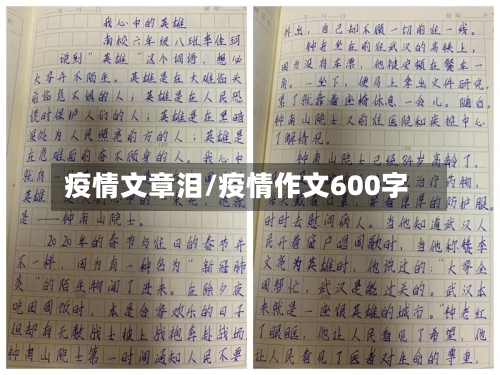 我心中的英雄
南校六年级八班李佳珂
说到"英雄"这个词语，想必
大家并不陌生。英雄是在大难临头
前临危不惧的人；英雄是在人民恐
慌时保护人们的人；英雄是在黑暗
深处为人民照亮前方的人；英雄是
在危难面前奋不顾身的人。我心中
就
是——钟南山院士。
2020年的春节与往日的春节并
不一样，因为有一种名为"新冠肺
炎"的陌生物闯了进来。在除夕夜
吃团圆饭时，本是合家欢乐的日子
但却有无数战士披上战袍奔赴战场
钟南山院士第一时间通知人民不要
外出，自己却不顾一切前往一线。
钟老坐在前往武汉的高铁上，
因为没有车票，他被安顿在餐车一
角。一坐下，便马上拿出文件研究，
累了就靠着座椅休息一会儿。随后，
钟南山院士又前往医院和疾控中心
了解情况。
钟南山院士已经84岁高龄了，
治疗药物，
的防护服。
时时去慰问病人。当他知道武汉人
民开着窗户唱国歌时，当他称赞李
文亮为英雄时，他说过的："大家全
国帮忙，武汉是能过关的。武汉本
来就是一座很英雄的城市。"钟老红
了眼眶，他让人民看见了希望，他
让人民看见了医者对生命的尊重，
疫情文章泪/疫情作文600字